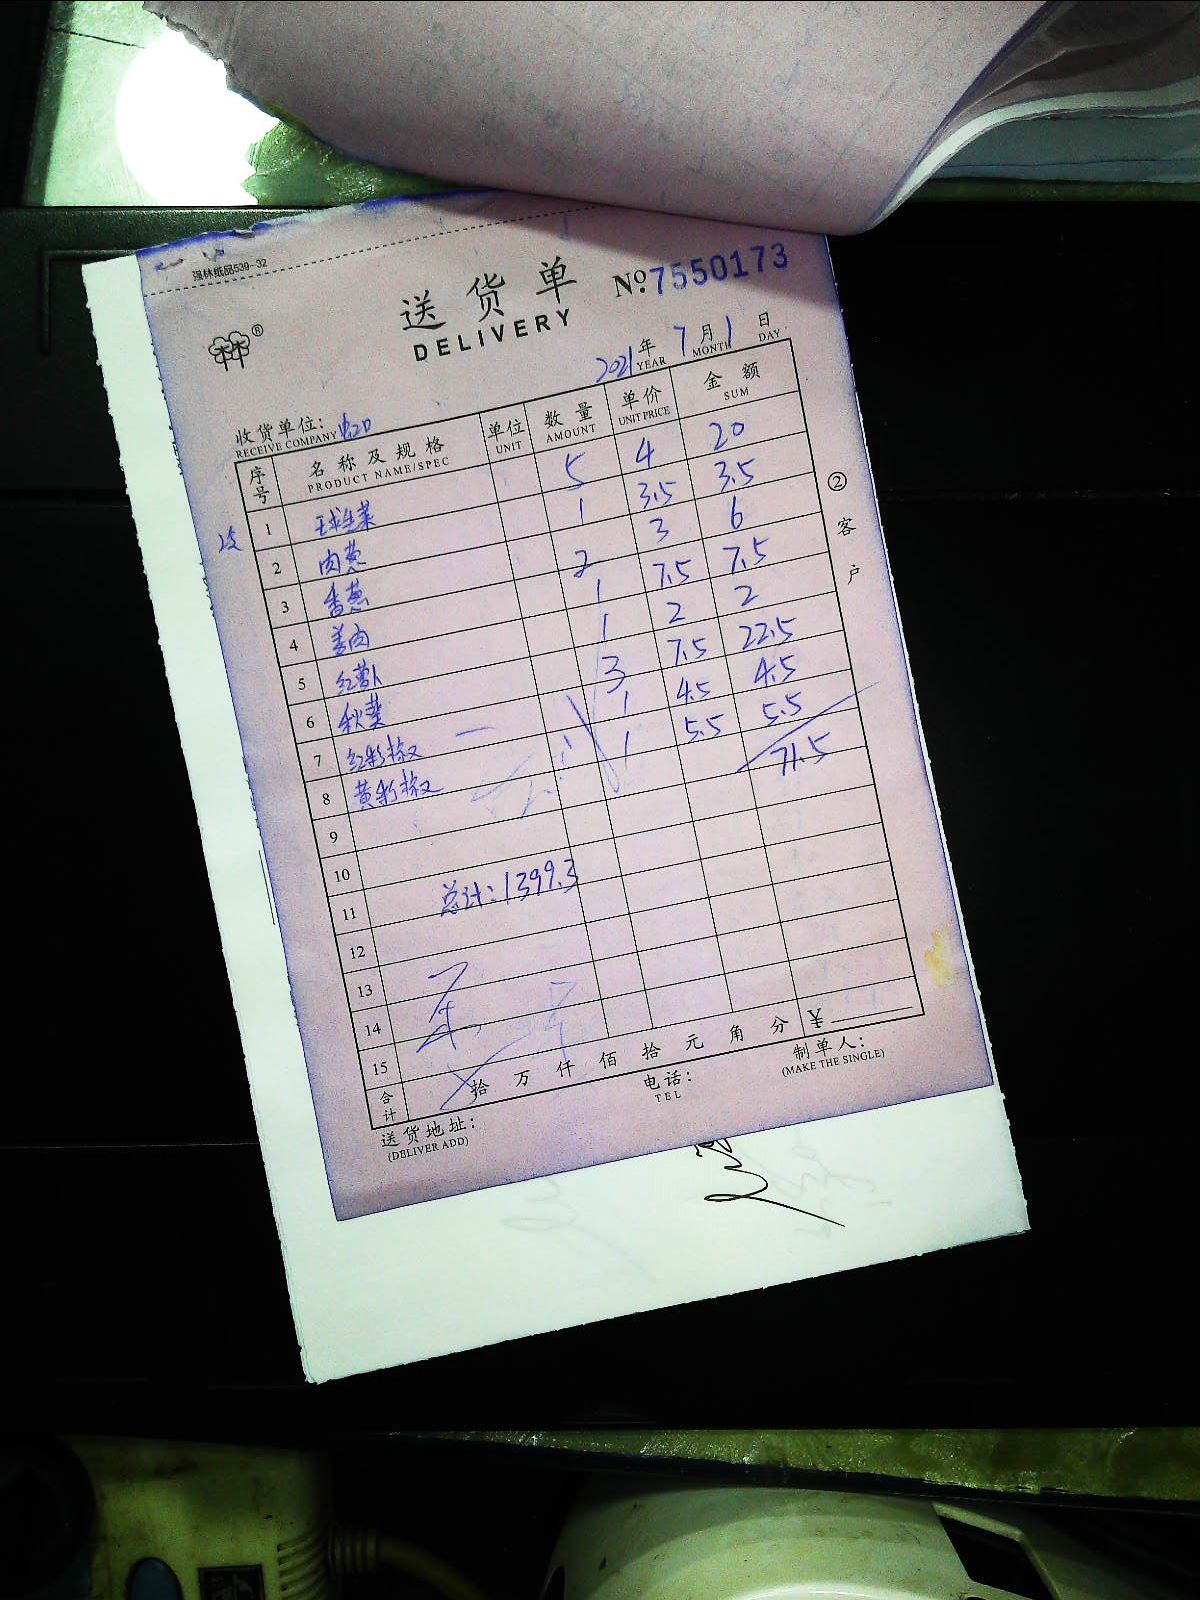 强林纸品539-32
送货单 No:7550173
DELIVERY
林林®
2021年 7月 1日
YEAR MONTH DAY
收货单位:
RECEIVE COMPANY
序号 名称及规格 单位 数量 单价 金额
PRODUCT NAME/SPEC UNIT AMOUNT UNIT PRICE SUM
1 球生菜 5 4 20
2 肉葱 1 3.5 3.5
3 香葱 2 3 6
4 姜肉 1 7.5 7.5
5 红萝卜 1 2 2
6 秋葵 3 7.5 22.5
7 红彩椒 1 4.5 4.5
8 黄彩椒 1 5.5 5.5
9 71.5
10
11 总计:1399.3
12
13
14
15
合计 拾 万 仟 佰 拾 元 角 分 ¥
送货地址: 电话: 制单人:
(DELIVER ADD) TEL (MAKE THE SINGLE)
②客户